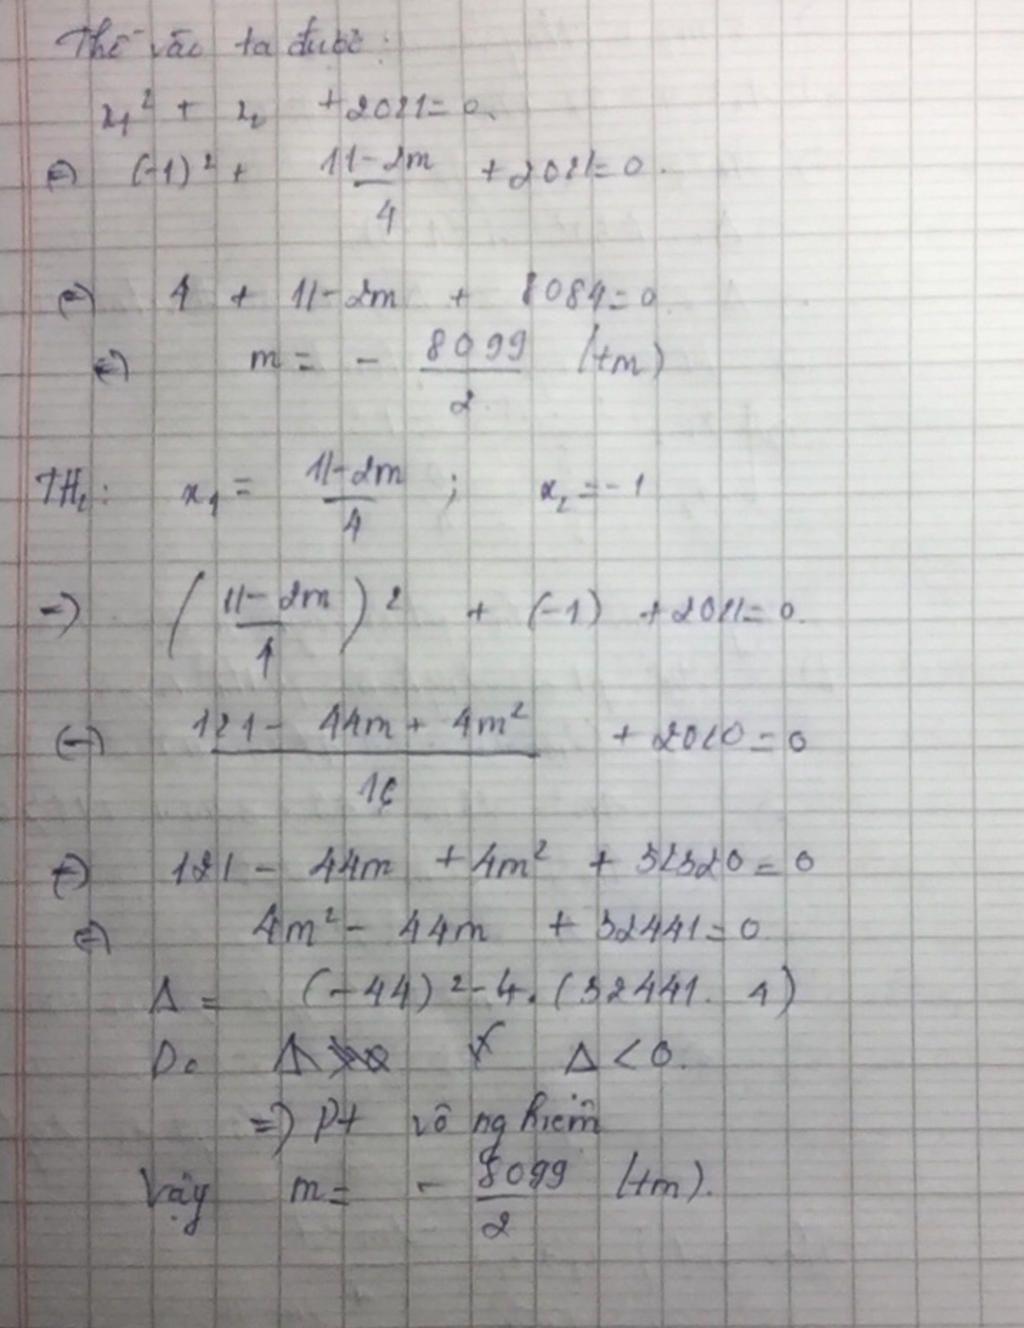 Thế vào ta được:
x₁² + x₂ + 2021 = 0.
⇔ (-1)² + \frac{11-2m}{4} + 2021 = 0.
⇔ 4 + 11-2m + 8084 = 0
⇔ m = - \frac{8099}{2} (tm)
TH₂: x₁ = \frac{11-2m}{4} ; x₂ = -1
⇒ (\frac{11-2m}{4})² + (-1) + 2021 = 0.
⇔ \frac{121 - 44m + 4m²}{16} + 2020 = 0
⇔ 121 - 44m + 4m² + 32320 = 0
⇔ 4m² - 44m + 32441 = 0
Δ = (-44)² - 4. (32441. 4)
Do Δ < 0.
⇒ Pt vô nghiệm
Vậy m = - \frac{8099}{2} (tm).